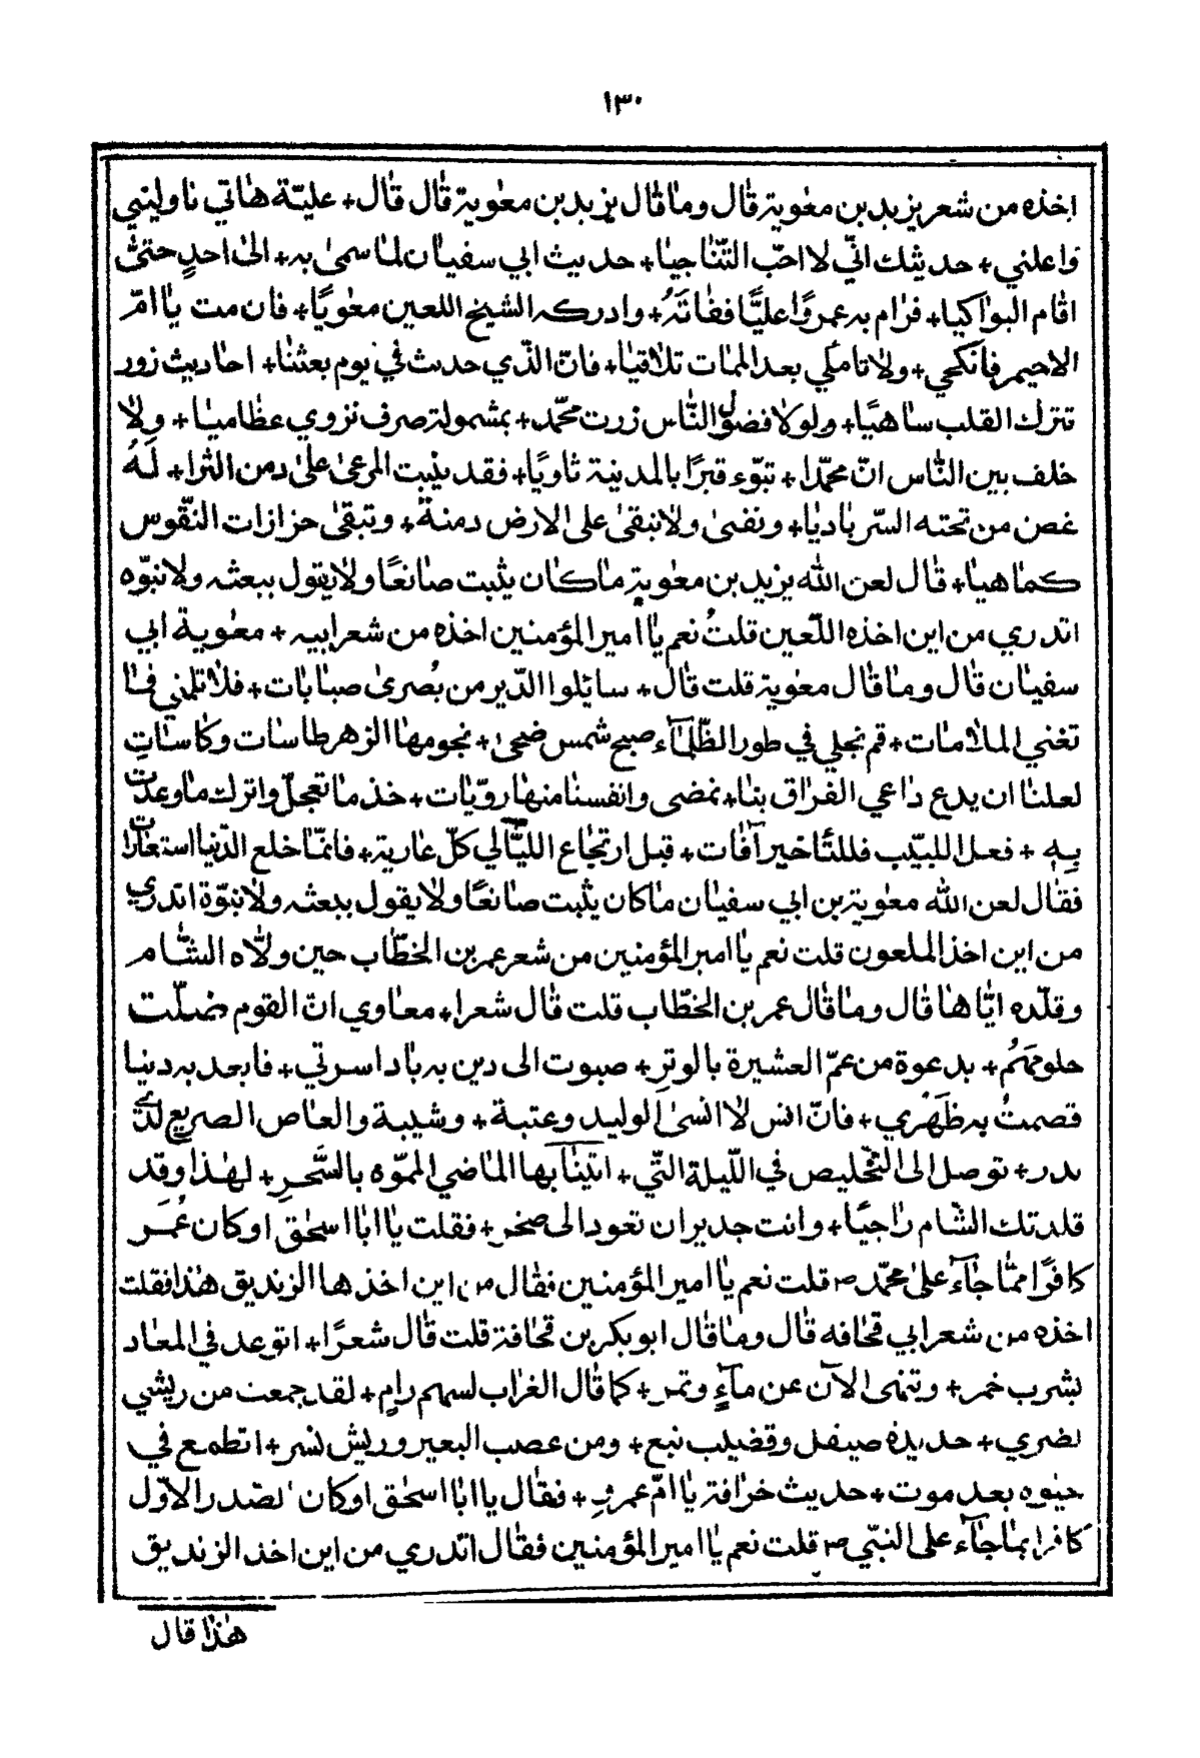 ١٣٠
اخذه من شعر يزيد بن معٰوية قٰال ومٰا قٰال يزيد بن معٰوية قٰال قٰال + عليّة هٰاتي نٰاوليني
وٰاعلني + حديثك انّي لا احبّ التّنٰاجيٰا + حديث ابي سفيٰان لمٰا سمىٰ به + الىٰ احدٍ حتىّٰ
اقٰام البوٰاكيٰا + فرٰام به عمروًا عليًّا ففٰاتَهُ + وادركه الشيخ اللعين معٰويًا + فان مت يٰا امّ
الاحيمر فٰانكحي + ولاٰ تٰامكي بعد الممٰات تلاٰقيٰا + فانّ الذّي حدثت في يوم بعثنٰا + احٰاديث زور
تترك القلب سٰاهيًا + ولولاٰ فضول النّٰاس زرت محّمد + بمشمولة صرف نروي عظٰاميٰا + ولاٰ
خلف بين النّٰاس انّ محمّدٰا + تبوّء قبرًا بالمدينة ثٰاويًا + فقد ينبت المرعىٰ علىٰ دمن الثرٰا + لَهُ
غصن من تحته السّر بٰاديٰا + ونفنىٰ ولاٰ نبقىٰ على الارض دمنة + وتبقىٰ حزازٰات النّفوس
كمٰا هيٰا + قٰال لعن اللّٰه يزيد بن معٰوية مٰا كٰان يثبت صٰانعًا ولاٰ يقول ببعثه ولاٰ نبوّه
اتدري من اين اخذه اللّعين قلتُ نعم يٰا امير المؤمنين اخذه من شعر ابيه + معٰوية ابي
سفيٰان قٰال ومٰا قٰال معٰوية قلت قٰال + سٰائلوا الدّير من بُصرىٰ صبٰابٰات + فلاٰ تلمني فمٰا
تغني الملاٰمات + قم نجلي في طور الظّلمٰاۤء صبح شمس ضحىٰ + نجومها الزهر طٰاسٰات وكٰاسٰاتِ
لعلنٰا ان يدع دٰاعي الفرٰاق بنٰا + نمضى وانفسنٰا منهٰا رويّٰات + خذ مٰا تعجلّ واترك مٰا وعدت
بِهِ + فعل اللبيب فللتأخير آفٰات + قبل ارتجٰاع الليّٰالي كلّ عٰارية + فانمّٰا خلع الدّنيٰا استعٰارٰات
فقٰال لعن اللّٰه معٰوية بن ابي سفيٰان مٰا كان يثبت صٰانعًا ولاٰ يقول ببعثه ولاٰ نبوّة اتدري
من اين اخذ الملعون قلت نعم يٰا امير المؤمنين من شعر عمر بن الخطّٰاب حين ولّاه الشّٰام
وقلّده ايّٰا هٰا قٰال ومٰا قٰال عمر بن الخطّاب قلت قٰال شعرا + معٰاوي انّ القوم ضلّت
حلومَهُم + بدعوة من عمّ العشيرة بالوترِ + صبوت الى دين به بٰاد اسرتي + فابعد به دنيا
قصمتُ به ظَهْري + فانّ انس لاٰ انسىٰ الوليد وعتبة + وشيبة والعٰاص الصريع لدىٰ
بدر + توصل الى التخّليص في اللّيلة التّي + اتينٰا بها المٰاضي المموّه بالسَّحرِ + لهٰذٰا وقد
قلدتك الشّام رٰاجيًا + وانت جدير ان تعود الى صخر + فقلت يٰا ابٰا اسحٰق او كٰان عُمَر
كافرًا ممّٰا جٰاۤءَ علىٰ محّمد ص قلت نعم يٰا امير المؤمنين فقٰال من اين اخذ ها الزنديق هٰذا فقلت
اخذه من شعر ابي قحٰافه قٰال ومٰا قٰال ابو بكر بن قحٰافة قلت قٰال شعرًا + اتوعد في المعٰاد
بشرب خمر + وتنهى الآن عن مآءٍ وتمر + كمٰا قٰال الغرٰاب لسهم رٰامٍ + لقد جمعت من ريشي
لضري + حديدة صيقل وقضيب نبع + ومن عصب البعير وريش نسر + اتطمع في
حيٰوه بعد موت + حديث خرٰافة يٰا امّ عمروٍ + فقٰال يٰا ابٰا اسحٰق او كٰان الصّدر الاوّل
كافرا بمٰا جٰاۤء على النبيّ ص قلت نعم يٰا امير المؤمنين فقٰال اتدري من اين اخذ الزنديق
هٰذٰا قٰال